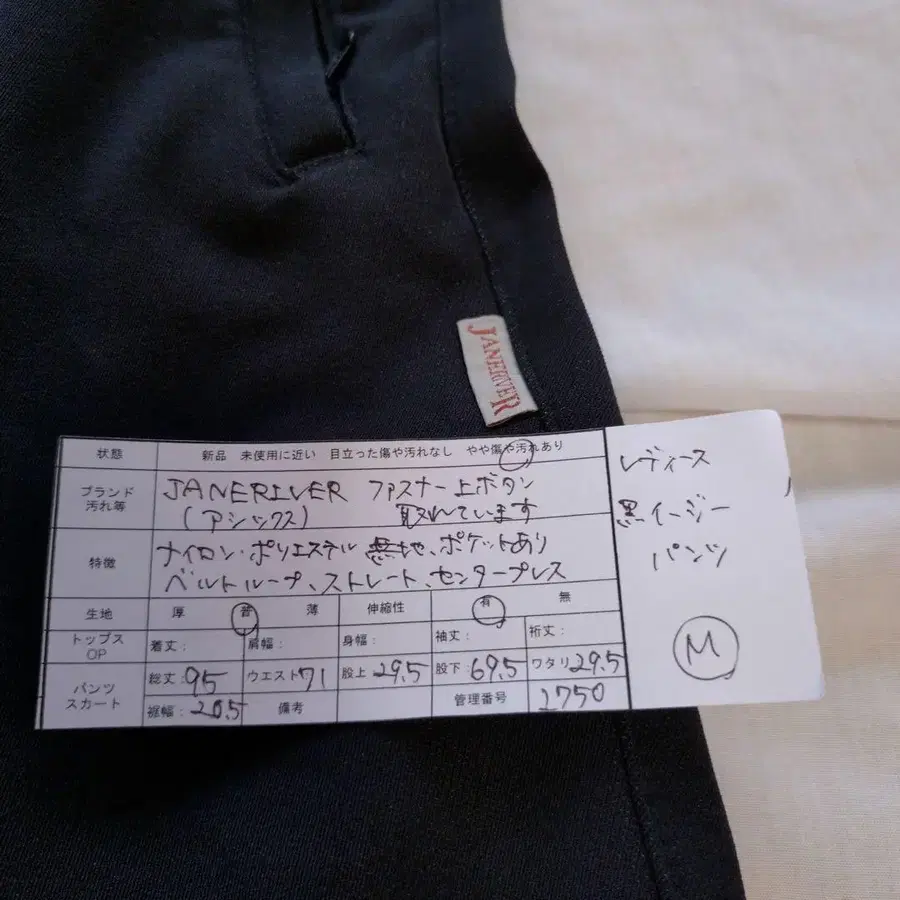 JANERIVER
状態 新品 未使用に近い 目立った傷や汚れなし やや傷や汚れあり
ブランド 汚れ等 JANERIVER ファスナー上ボタン
(アシックス) 取れています
特徴 ナイロン・ポリエステル 無地、ポケットあり
ベルトループ、ストレート、センタープレス
生地 厚 普 薄 伸縮性 有 無
トップス OP 着丈: 肩幅: 身幅: 袖丈: 裄丈:
パンツ スカート 総丈: 95 ウエスト 71 股上 29.5 股下: 69.5 ワタリ 29.5
裾幅: 20.5 備考 管理番号 2750
レディース
黒イージー
パンツ
M